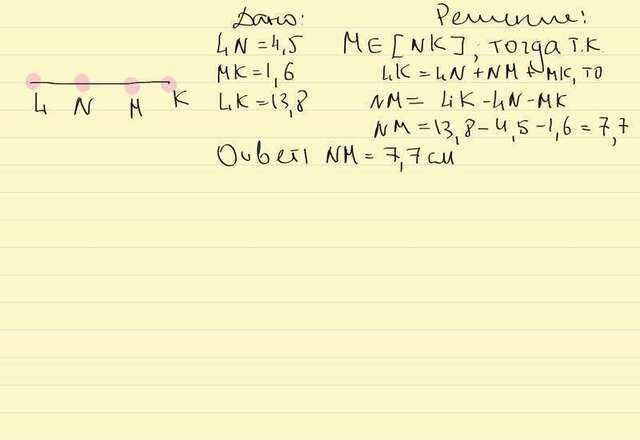 Дано:
LN = 4,5
MK = 1,6
LK = 13,8
Решение:
M ∈ [NK]; тогда т.к.
LK = LN + NM + MK, то
NM = LK - LN - MK
NM = 13,8 - 4,5 - 1,6 = 7,7
Ответ: NM = 7,7 см
L N M K